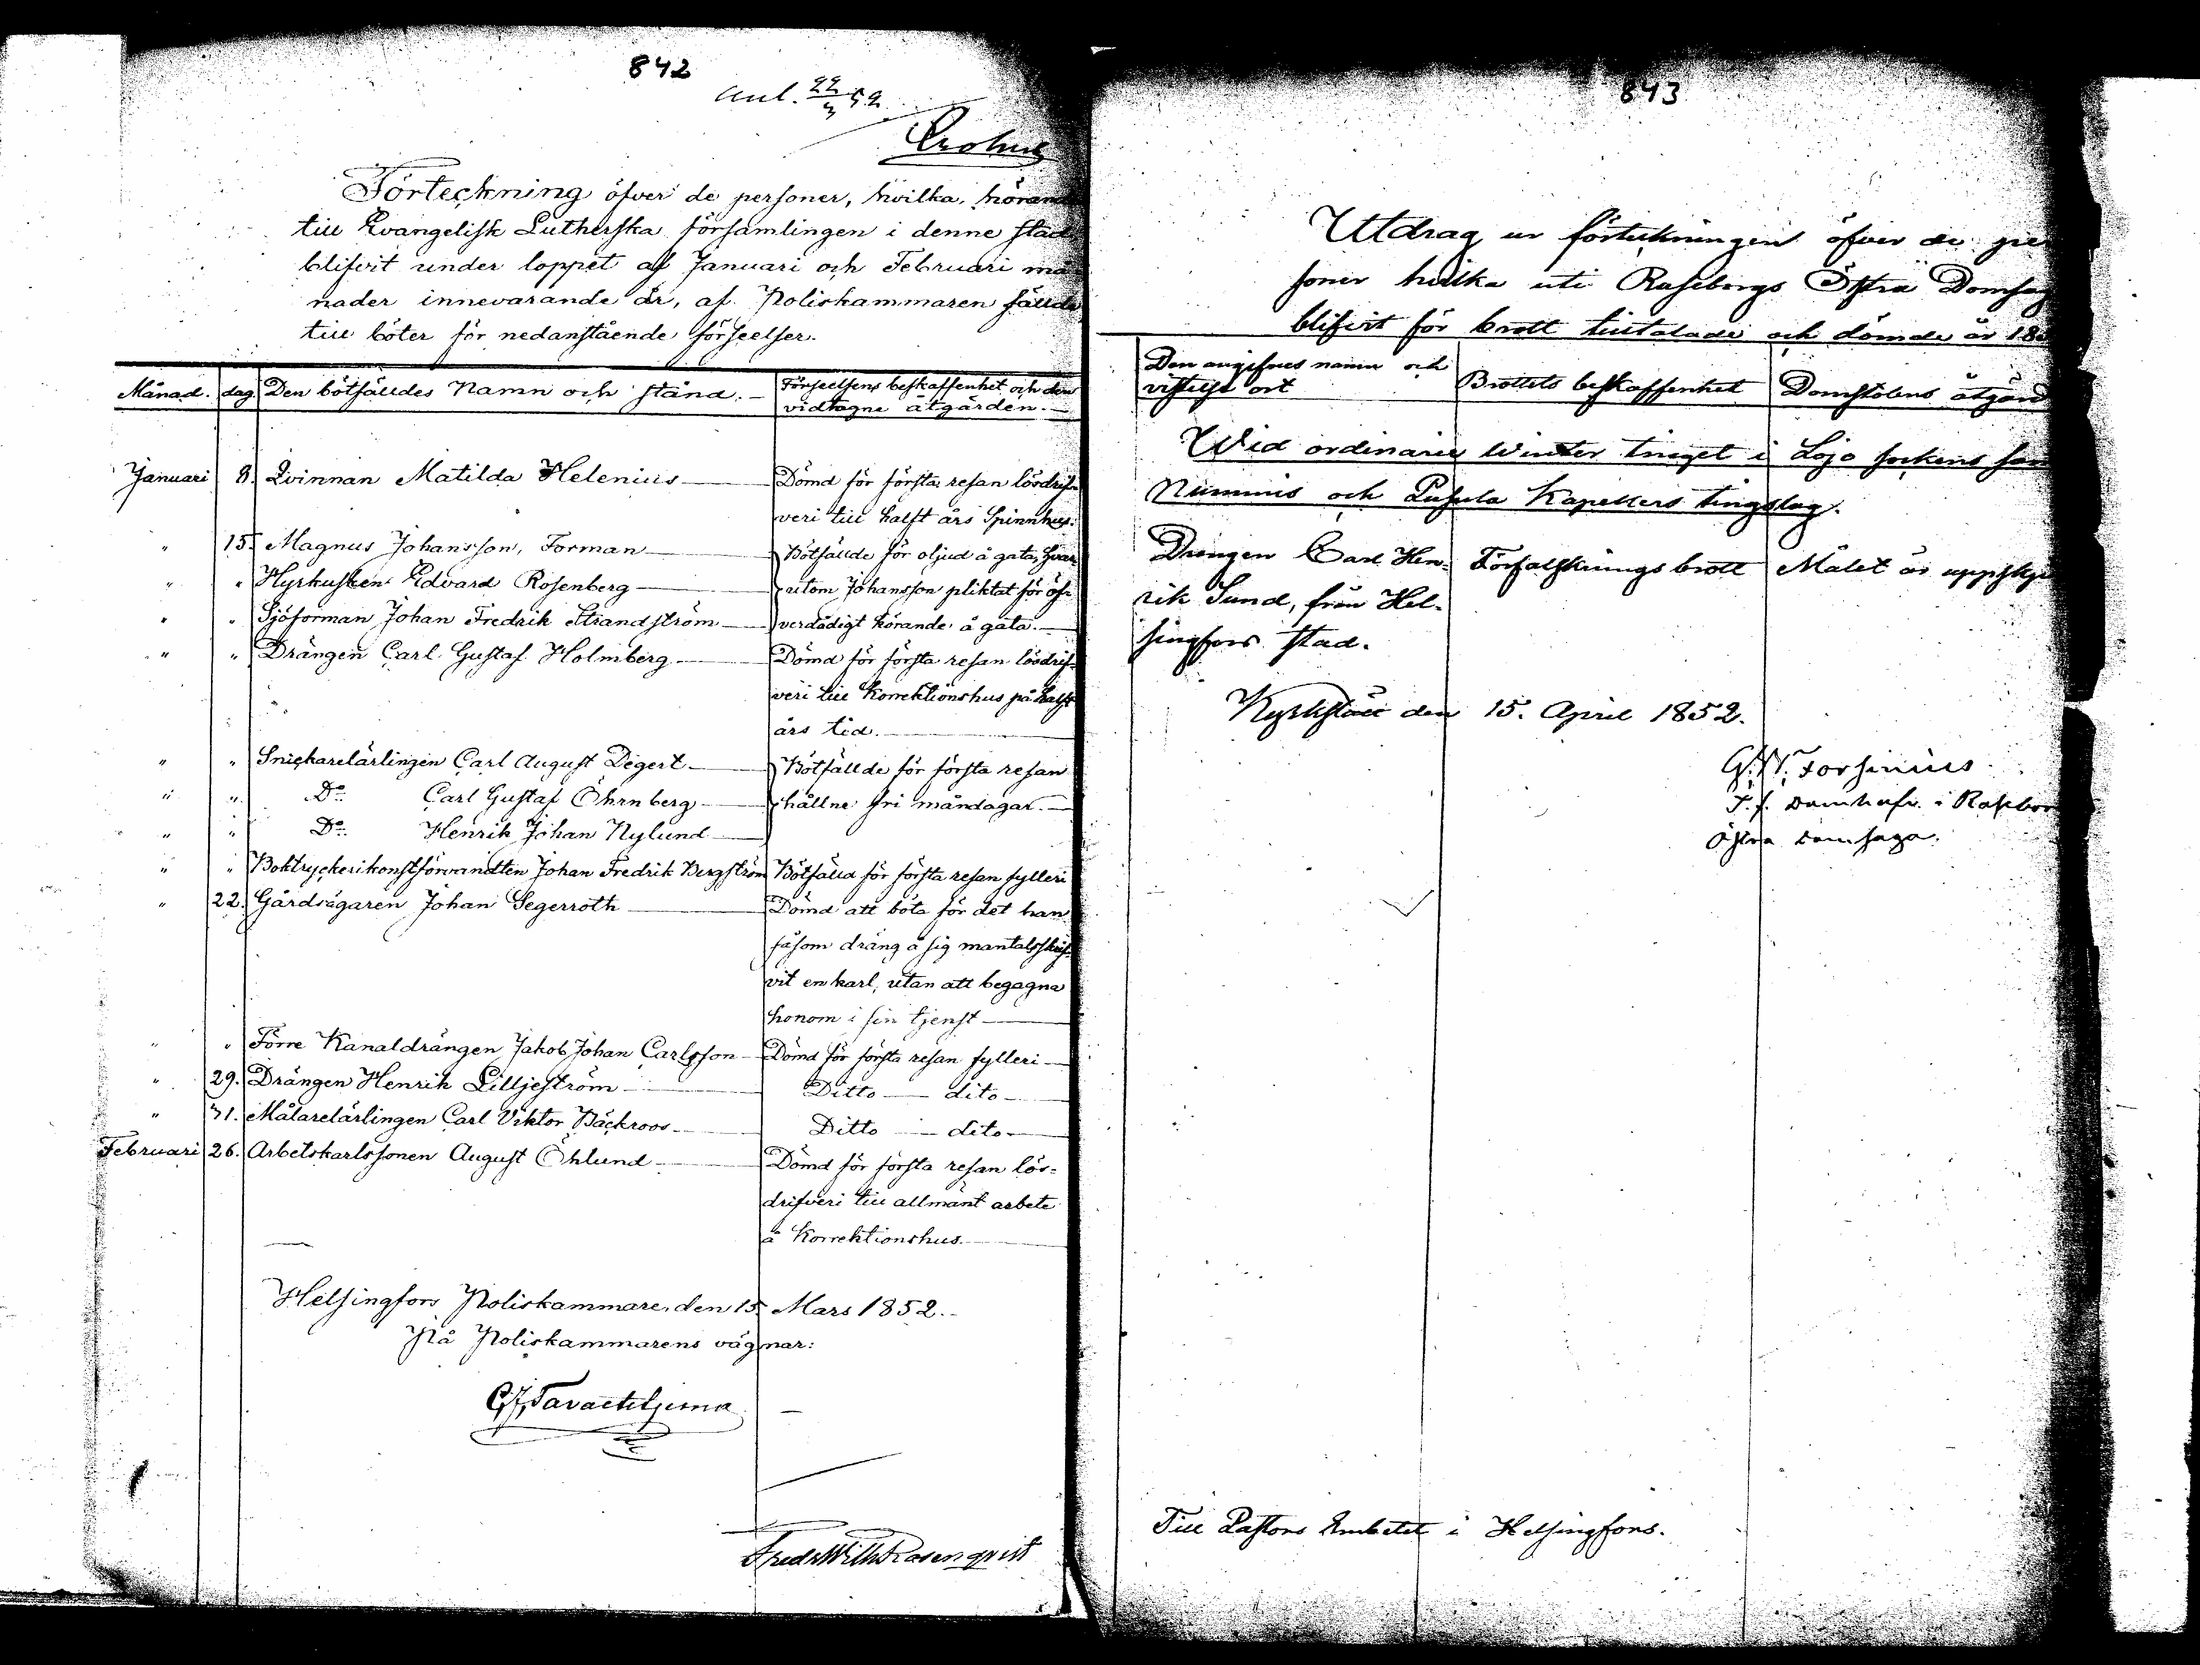 842
Ank. 22/3 52
Förteckning öfver de personer, hvilka, hörand
till Evangelisk Lutherska församlingen i denne stad
blifvit under loppet af Januari och Februari må
nader innevarande år, af Poliskammaren fällde
till böter för nedanstående förseelser.
Månad. dag Den bötfälldes Namn och stånd. Förseelsens beskaffenhet och den
vidtagne åtgärden.
Januari 8. Qvinnan Matilda Helenius Dömd för första resan lösdrif-
veri till halft års Spinnhus.
" 15. Magnus Johansson, Forman Bötfällde för oljud å gata, hvar
" " Hyrkusken Edvard Rosenberg utom Johansson pliktat för öf-
" " Sjöforman Johan Fredrik Strandström verdådigt körande å gata.
" " Drängen Carl Gustaf Holmberg Dömd för första resan lösdrif-
veri till Korrektionshus på halft
års tid.
" " Snickarelärlingen Carl August Degert Bötfällde för första resan
" " Do Carl Gustaf Öhrnberg hållne fri måndagar.
" " Do Henrik Johan Nylund
" " Boktryckerikonstförvandten Johan Fredrik Bergström Bötfälld för första resan fylleri
" 22. Gårdsägaren Johan Segerroth Dömd att böta för det han
såsom dräng å sig mantalsskrif-
vit en karl, utan att begagna
honom i sin tjenst
" " Förre Kanaldrängen Jakob Johan Carlsson Dömd för första resan fylleri
" 29. Drängen Henrik Lilljeström Ditto dito
" 31. Målarelärlingen Carl Viktor Bäckroos Ditto dito
Februari 26. Arbetskarlssonen August Öhlund Dömd för första resan lös-
drifveri till allmänt arbete
å Korrektionshus.
Helsingfors Poliskammare, den 15. Mars 1852.
På Poliskammarens vägnar:
Fredr Wilh Rosenqvist
843
Utdrag ur förteckningen öfver de per
soner hvilka uti Raseborgs Östra Domsag
blifvit för brott tilltalade och dömde år 185
Den angifnes namn och
vistelse ort Brottets beskaffenhet Domstolens åtgärd
Wid ordinarie Winter tinget i Lojo sockens sam
Nummis och Pusula Kapellers tingslag.
Drengen Carl Hen- Förfalsknings brott Målet är uppskju
rik Sund, från Hel-
singfors stad.
Kyrkslätt den 15. April 1852.
G. W. Forsenius
T. f. Domhafv. i Rasebor
Östra Domsaga.
Till Pastors Embetet i Helsingfors.